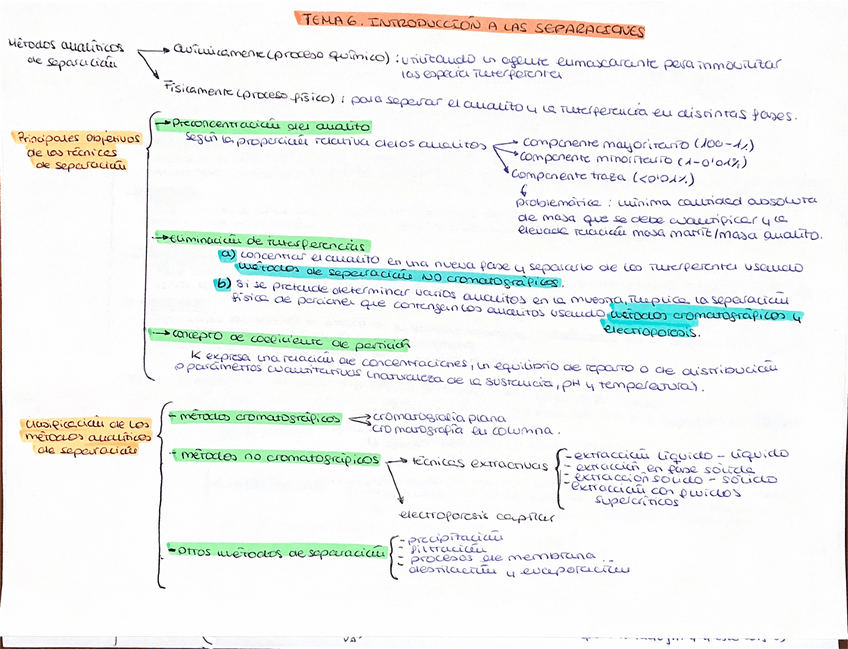 TEMA 6. INTRODUCCIÓN A LAS SEPARACIONES
Métodos analíticos de separación
→ Químicamente (proceso químico): utilizando un agente enmascarante para inmovilizar
las especia interferente
Físicamente (proceso físico): para separar el analito y la interferencia en distintas fases.
Principales objetivos
de las técnicas
de separación
→ Preconcentración del analito
Según la proporción relativa de los analitos → componente mayoritario (100-1%)
→ componente minoritario (1-0'01%)
componente traza (<0'01%)
problemática: mínima cantidad absoluta
de masa que se debe cuantificar y la
elevada relación masa matriz/masa analito.
→ Eliminación de interferencias
a) concentrar el analito en una nueva fase y separarlo de los interferentes usando
métodos de separación NO cromatográficos.
b) Si se pretende determinar varios analitos en la muestra, implica la separación
física de porciones que contengan los analitos usando métodos cromatográficos y
electroporosis.
→ concepto de coeficiente de partición
K expresa una relación de concentraciones, un equilibrio de reparto o de distribución
o parámetros cuantitativos (naturaleza de la sustancia, pH y temperatura).
Clasificación de los
métodos analíticos
de separación
- métodos cromatográficos → cromatografía plana
cromatografía en columna.
- métodos no cromatográficos → técnicas extractivas
- extracción líquido - líquido
- extracción en fase sólida
- extracción sólido - sólido
- extracción con fluidos
supercríticos
electroporesis capilar
- Otros métodos de separación
- precipitación
- filtración
- procesos de membrana
destilación y evaporación